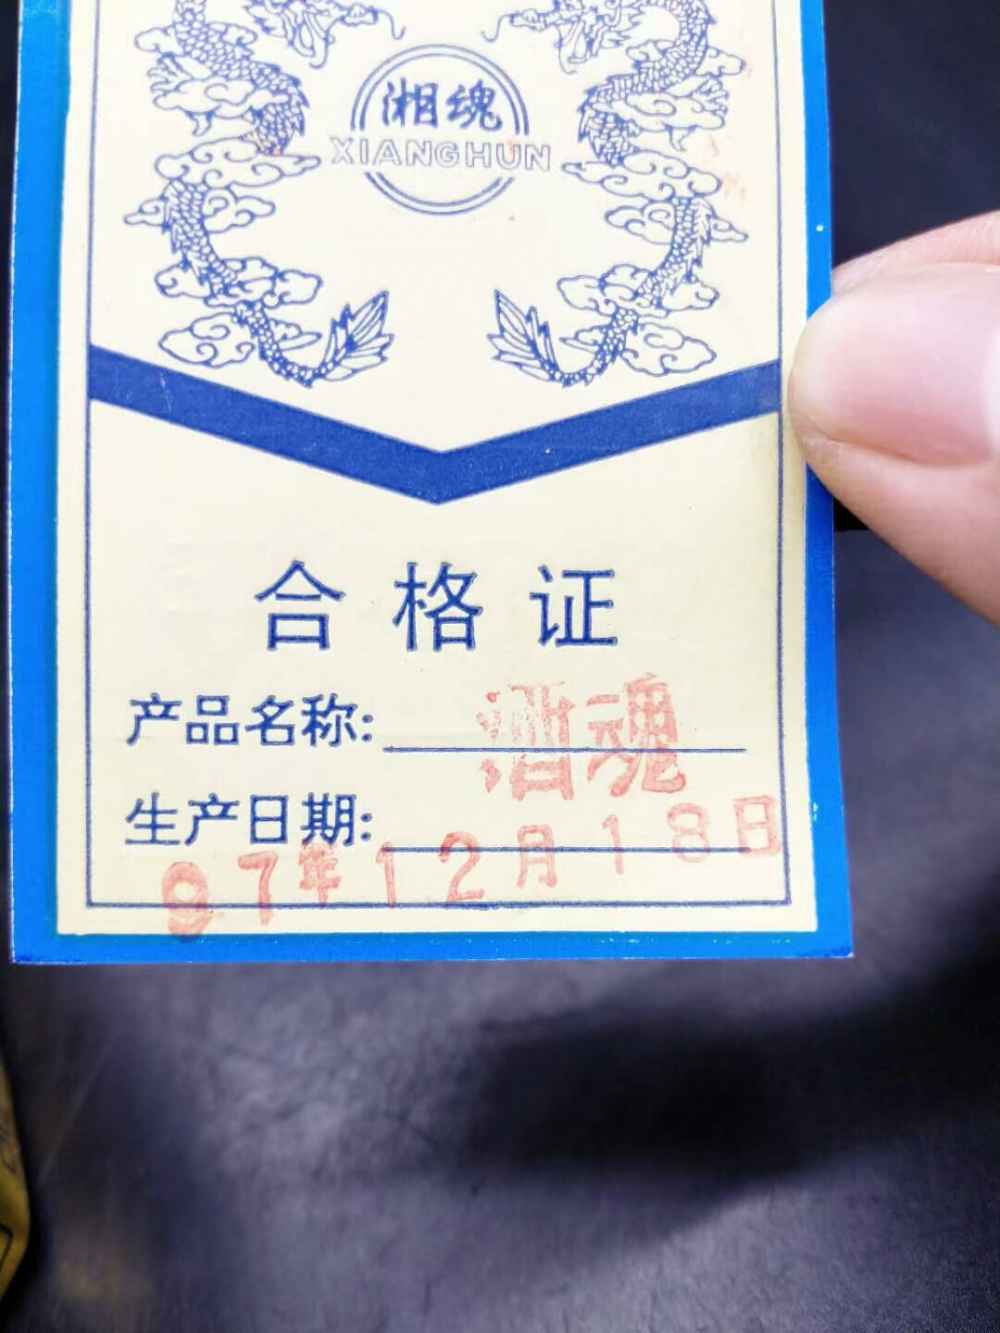 湘魂
XIANGHUN
合格证
产品名称: 酒魂
生产日期:
97年12月18日